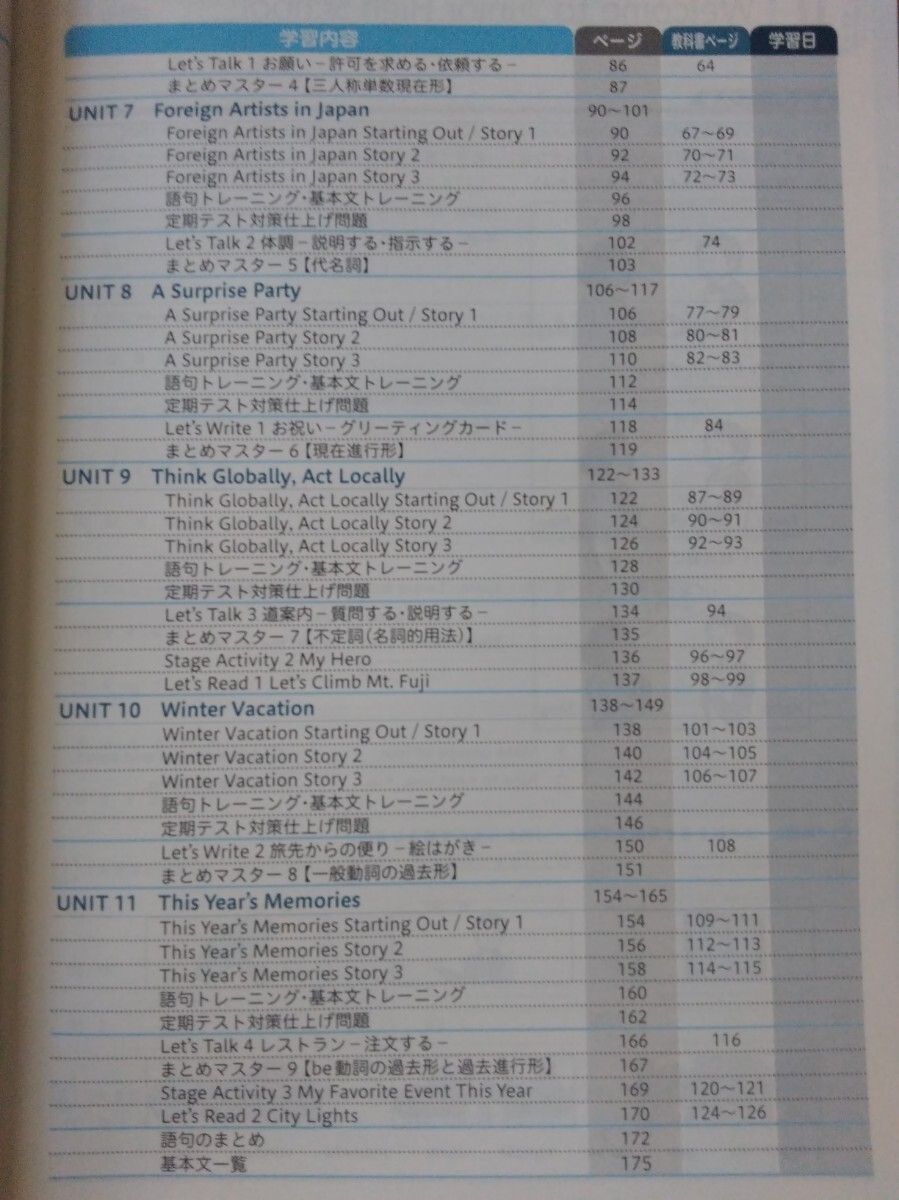 学習内容 ページ 教科書ページ 学習日
Let's Talk 1 お願い−許可を求める・依頼する− 86 64
まとめマスター 4【三人称単数現在形】 87
UNIT 7 Foreign Artists in Japan 90～101
Foreign Artists in Japan Starting Out / Story 1 90 67～69
Foreign Artists in Japan Story 2 92 70～71
Foreign Artists in Japan Story 3 94 72～73
語句トレーニング・基本文トレーニング 96
定期テスト対策仕上げ問題 98
Let's Talk 2 体調−説明する・指示する− 102 74
まとめマスター 5【代名詞】 103
UNIT 8 A Surprise Party 106～117
A Surprise Party Starting Out / Story 1 106 77～79
A Surprise Party Story 2 108 80～81
A Surprise Party Story 3 110 82～83
語句トレーニング・基本文トレーニング 112
定期テスト対策仕上げ問題 114
Let's Write 1 お祝い−グリーティングカード− 118 84
まとめマスター 6【現在進行形】 119
UNIT 9 Think Globally, Act Locally 122～133
Think Globally, Act Locally Starting Out / Story 1 122 87～89
Think Globally, Act Locally Story 2 124 90～91
Think Globally, Act Locally Story 3 126 92～93
語句トレーニング・基本文トレーニング 128
定期テスト対策仕上げ問題 130
Let's Talk 3 道案内−質問する・説明する− 134 94
まとめマスター 7【不定詞(名詞的用法)】 135
Stage Activity 2 My Hero 136 96～97
Let's Read 1 Let's Climb Mt. Fuji 137 98～99
UNIT 10 Winter Vacation 138～149
Winter Vacation Starting Out / Story 1 138 101～103
Winter Vacation Story 2 140 104～105
Winter Vacation Story 3 142 106～107
語句トレーニング・基本文トレーニング 144
定期テスト対策仕上げ問題 146
Let's Write 2 旅先からの便り−絵はがき− 150 108
まとめマスター 8【一般動詞の過去形】 151
UNIT 11 This Year's Memories 154～165
This Year's Memories Starting Out / Story 1 154 109～111
This Year's Memories Story 2 156 112～113
This Year's Memories Story 3 158 114～115
語句トレーニング・基本文トレーニング 160
定期テスト対策仕上げ問題 162
Let's Talk 4 レストラン−注文する− 166 116
まとめマスター 9【be動詞の過去形と過去進行形】 167
Stage Activity 3 My Favorite Event This Year 169 120～121
Let's Read 2 City Lights 170 124～126
語句のまとめ 172
基本文一覧 175